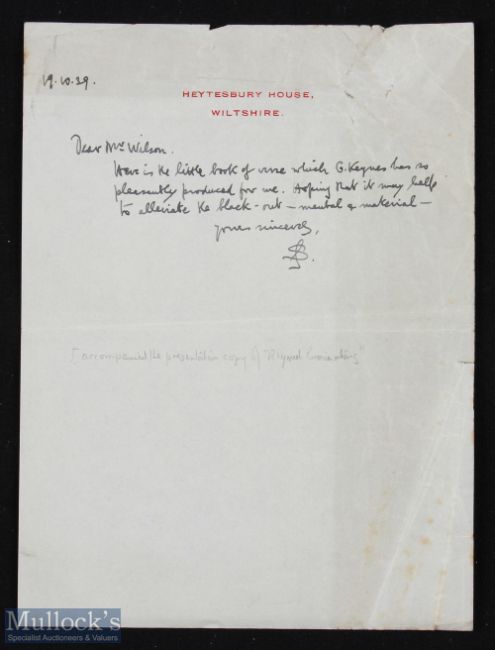 19.10.39.
HEYTESBURY HOUSE,
WILTSHIRE.
Dear Mr Wilson.
Here is the little book of verse which G. Keynes has so
pleasantly produced for me. Hoping that it may help
to alleviate the black-out – mental & material –
yours sincerely,
SS.
[accompanied the presentation copy of "Rhymed Ruminations"
Mullock's
Specialist Auctioneers & Valuers